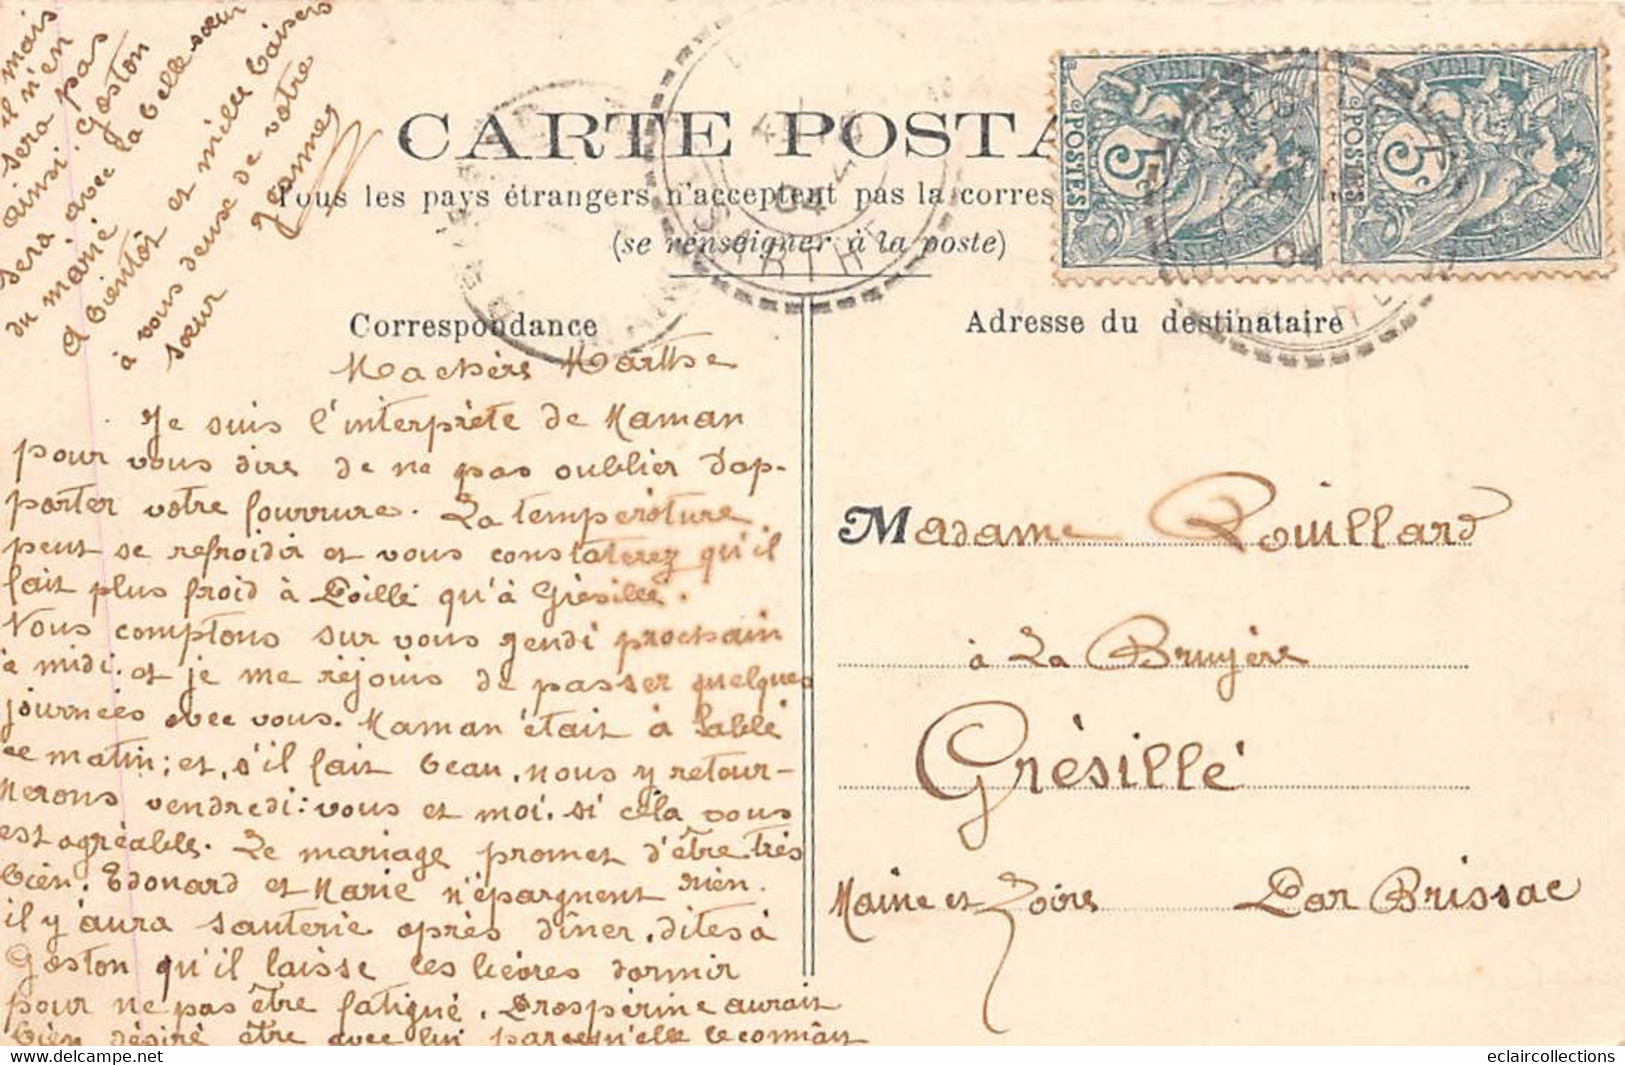 CARTE POSTA
Tous les pays étrangers n'acceptent pas la corres
(se renseigner à la poste)
Correspondance
Adresse du destinataire
POSTES 5c
POSTES 5c
04
SARTHE
Ma chère Marthe
Je suis l'interprète de Maman
pour vous dire de ne pas oublier d'ap-
porter votre fourrure. La température
peut se refroidir et vous constaterez qu'il
fait plus froid à Poillé qu'à Grésillé.
Nous comptons sur vous jeudi prochain
à midi. et je me réjouis de passer quelques
journées avec vous. Maman était à Sablé
ce matin; et, s'il fait beau, nous y retour-
nerons vendredi: vous et moi. si cela vous
est agréable. Le mariage promet d'être très
bien. Edouard et Marie n'épargnent rien.
il y aura sauterie après dîner. dites à
Gaston qu'il laisse les lièvres dormir
pour ne pas être fatigué. Prospérine aurait
bien désiré être avec lui parcequ'elle le connait
il mais
il n'en
sera pas
ainsi. Gaston
sera avec la belle sœur
du marié
A bientôt et mille baisers
à vous deux de votre
sœur Jeanne
Madame Rouillard
à La Bruyère
Grésillé
Maine et Loire Par Brissac
eclaircollections